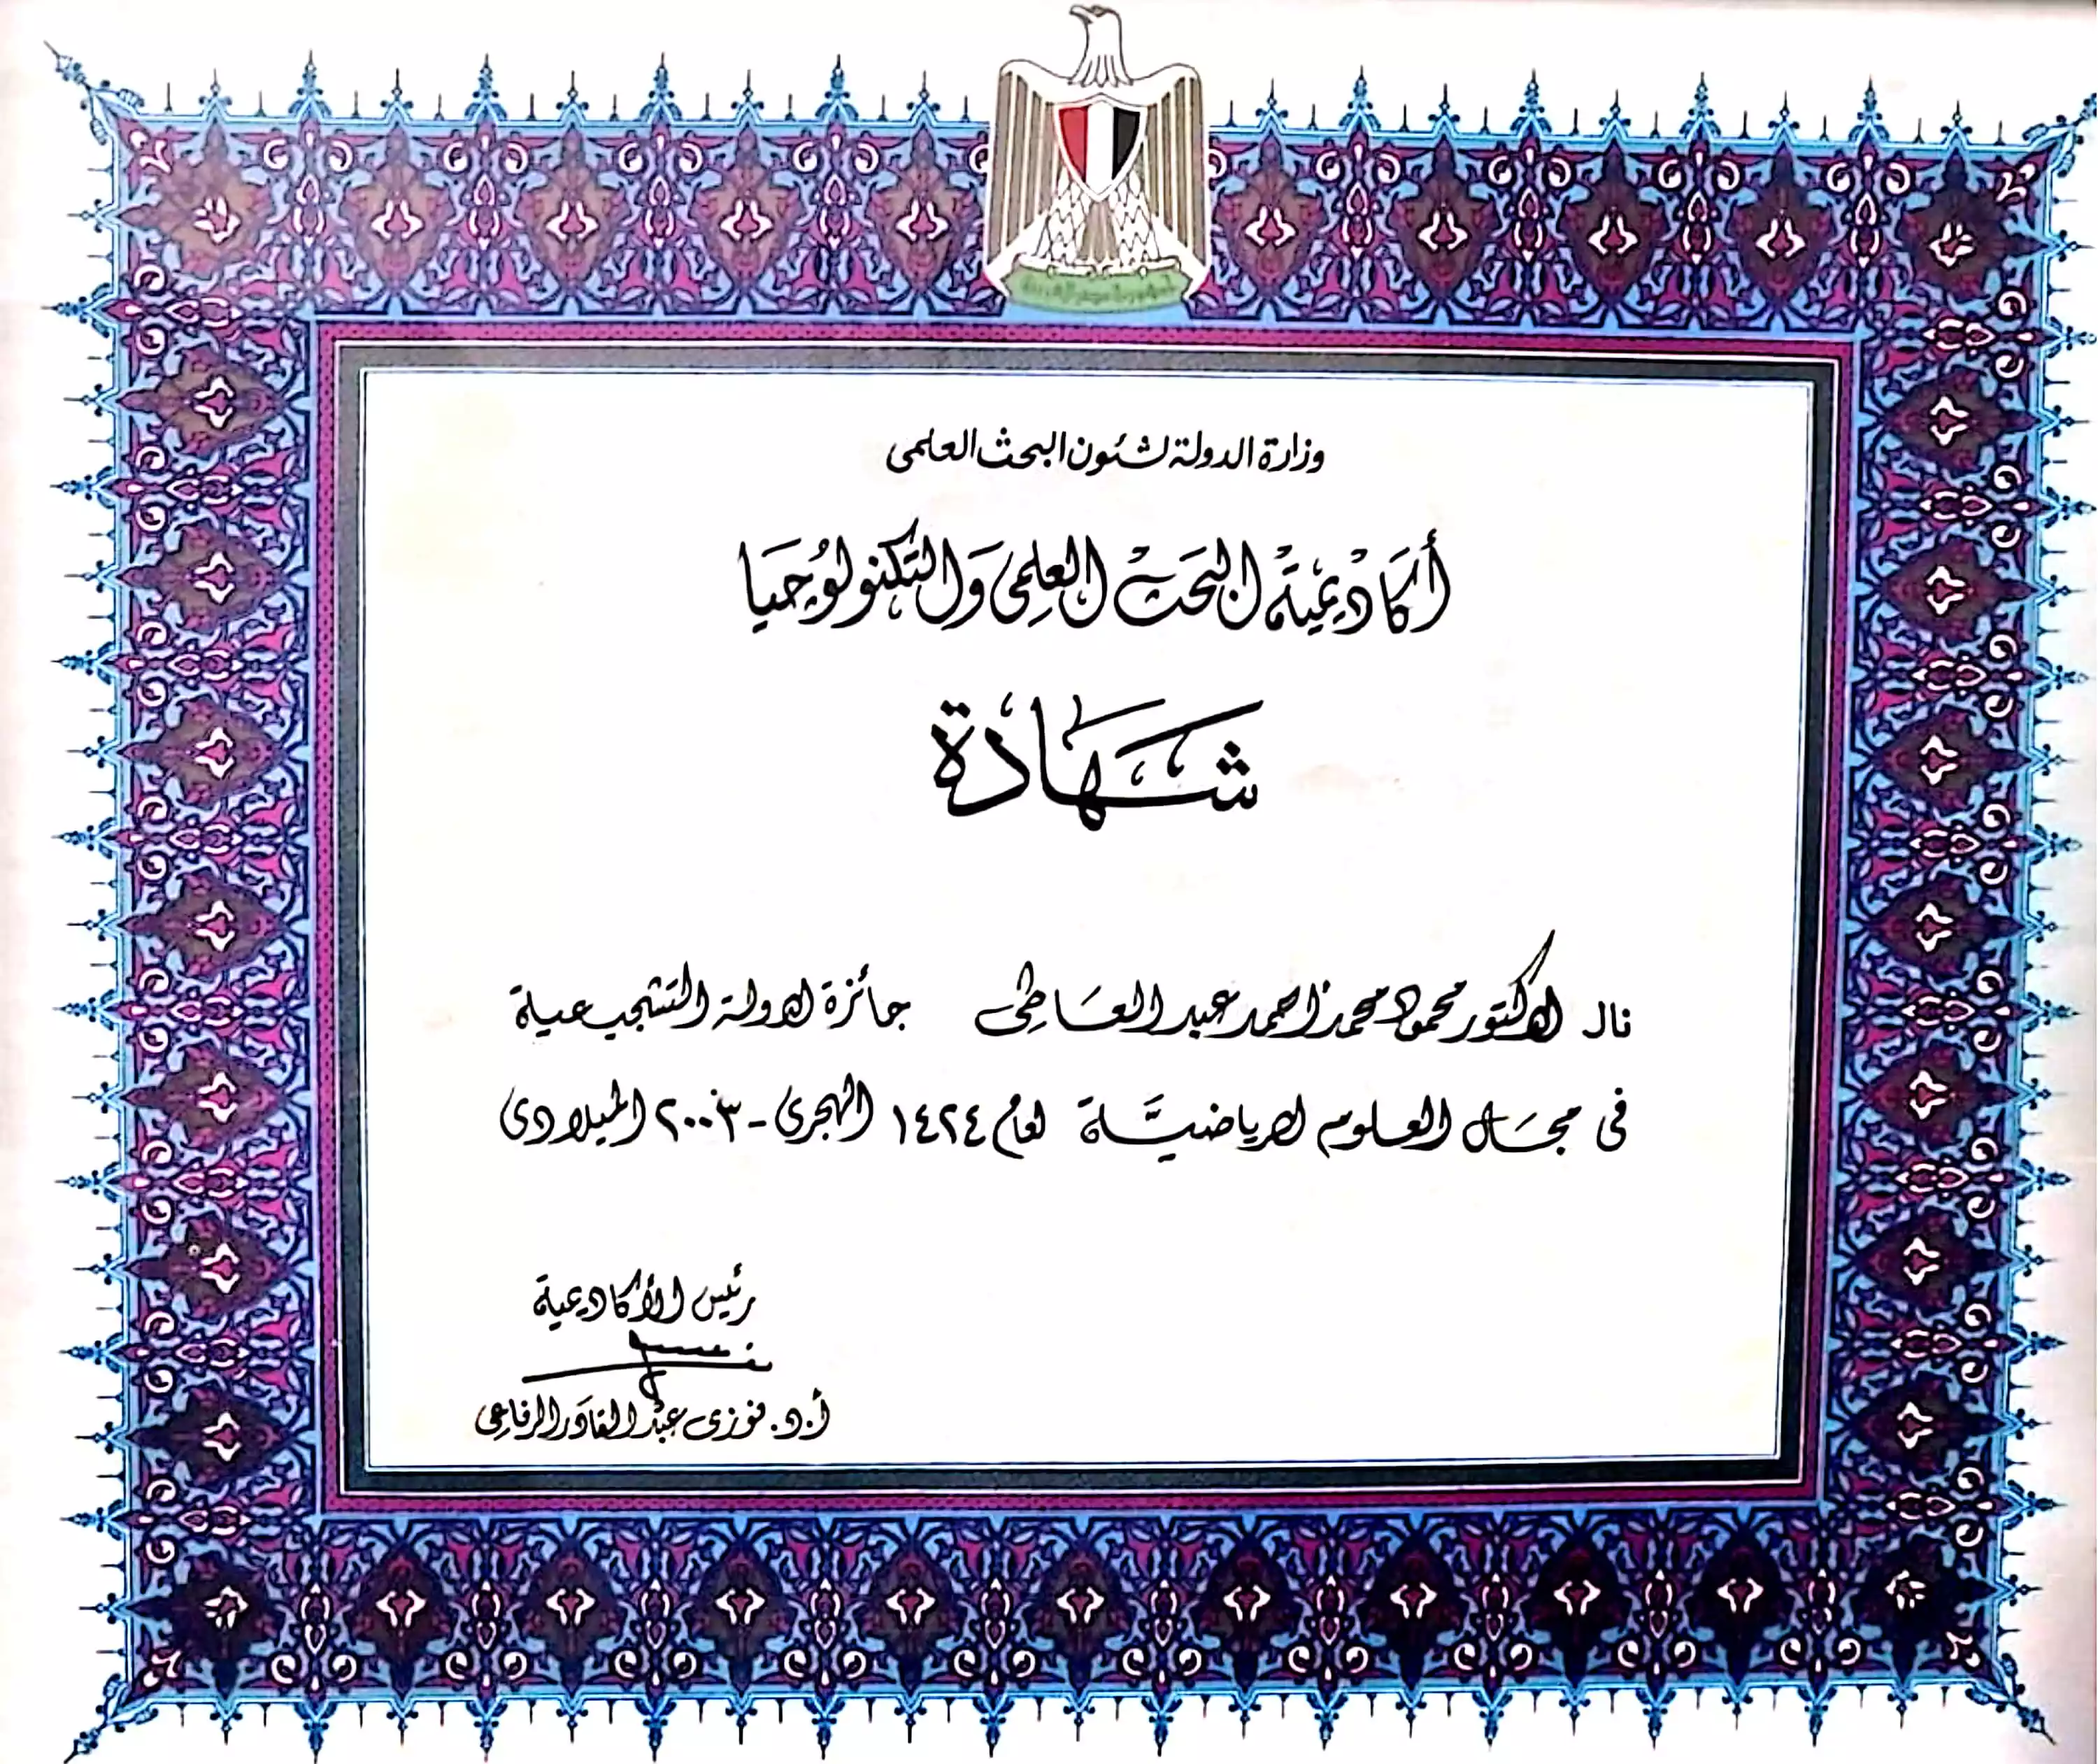 جمهورية مصر العربية
وزارة الدولة لشئون البحث العلمى
أكاديمية البحث العلمى والتكنولوجيا
شهادة
نال الدكتور محمود محمد احمد عبد العاطى جائزة الدولة التشجيعية
فى مجال العلوم الرياضية لعام ١٤٢٤ الهجرى - ٢٠٠٣ الميلادى
رئيس الأكاديمية
أ.د. فوزى عبد القادر الرفاعى